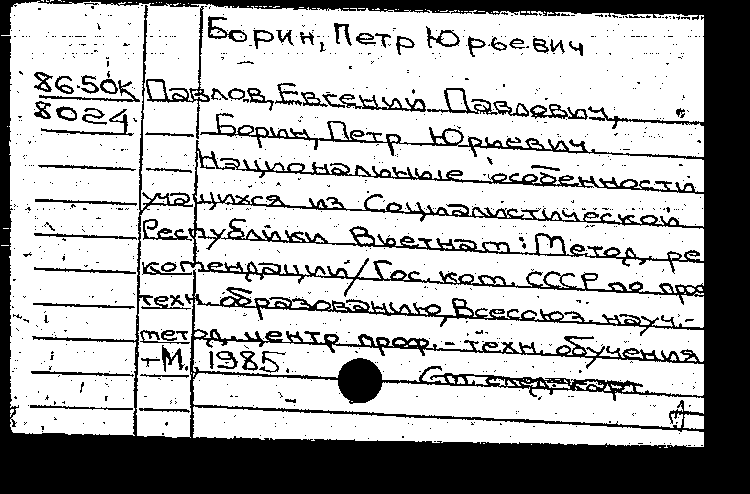 Борин, Петр Юрьевич
86-50К Павлов, Евгений Павлович,
8024 Борин, Петр Юриевич.
Национальные особенности
учащихся из Социалистической
Республики Вьетнам: Метод. ре
комендации/Гос. ком. СССР по про
техн. образованию, Всесоюз. науч.-
метод. центр проф.-техн. обучения
-М., 1985.
См. след. карт.